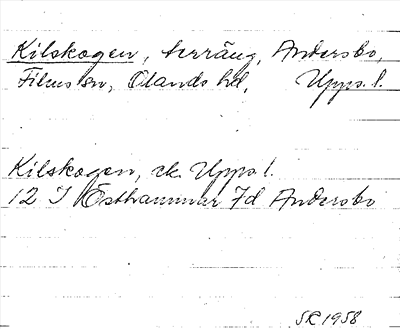 Kilskogen, terräng, Andersbo,
Films sn, Olands hd, Upps. l.
Kilskogen, ek. Upps l.
12 I Östhammar 7d Andersbo
SR 1958